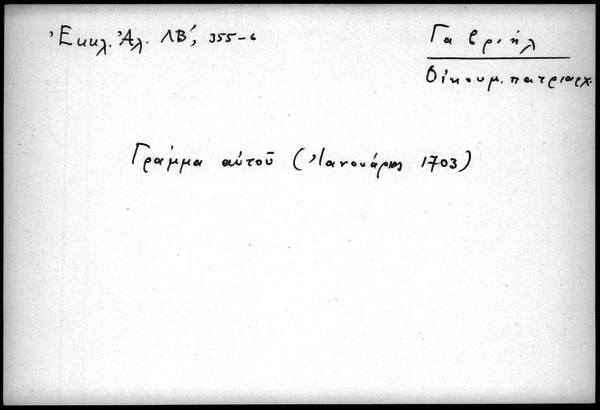 Ἐκκλ. Ἀλ. ΛΒ', 355-6
Γαβριήλ
Οἰκουμ. πατριαρχ.
Γράμμα αὐτοῦ (Ἰανουάριος 1703)